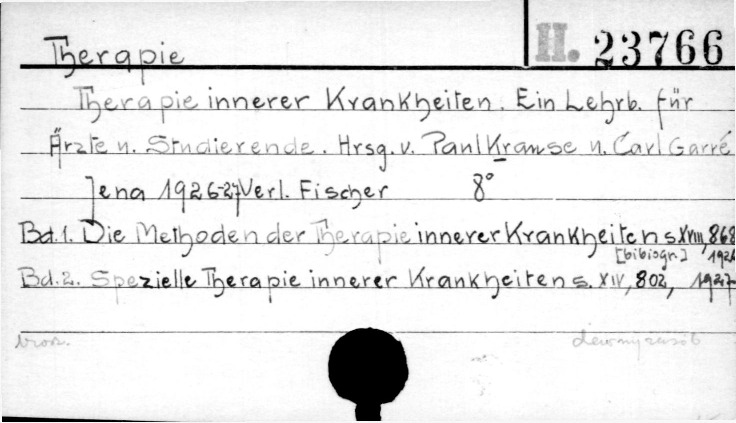 Therapie II. 23766
Therapie innerer Krankheiten. Ein Lehrb. für
Ärzte u. Studierende. Hrsg. v. Paul Krause u. Carl Garré
Jena 1926-27 Verl. Fischer 8°
Bd. 1. Die Methoden der Therapie innerer Krankheiten s. XVIII, 868
[bibiogr.] 1926
Bd. 2. Spezielle Therapie innerer Krankheiten s. XIV, 802, 1927
brosz. dawny zasób